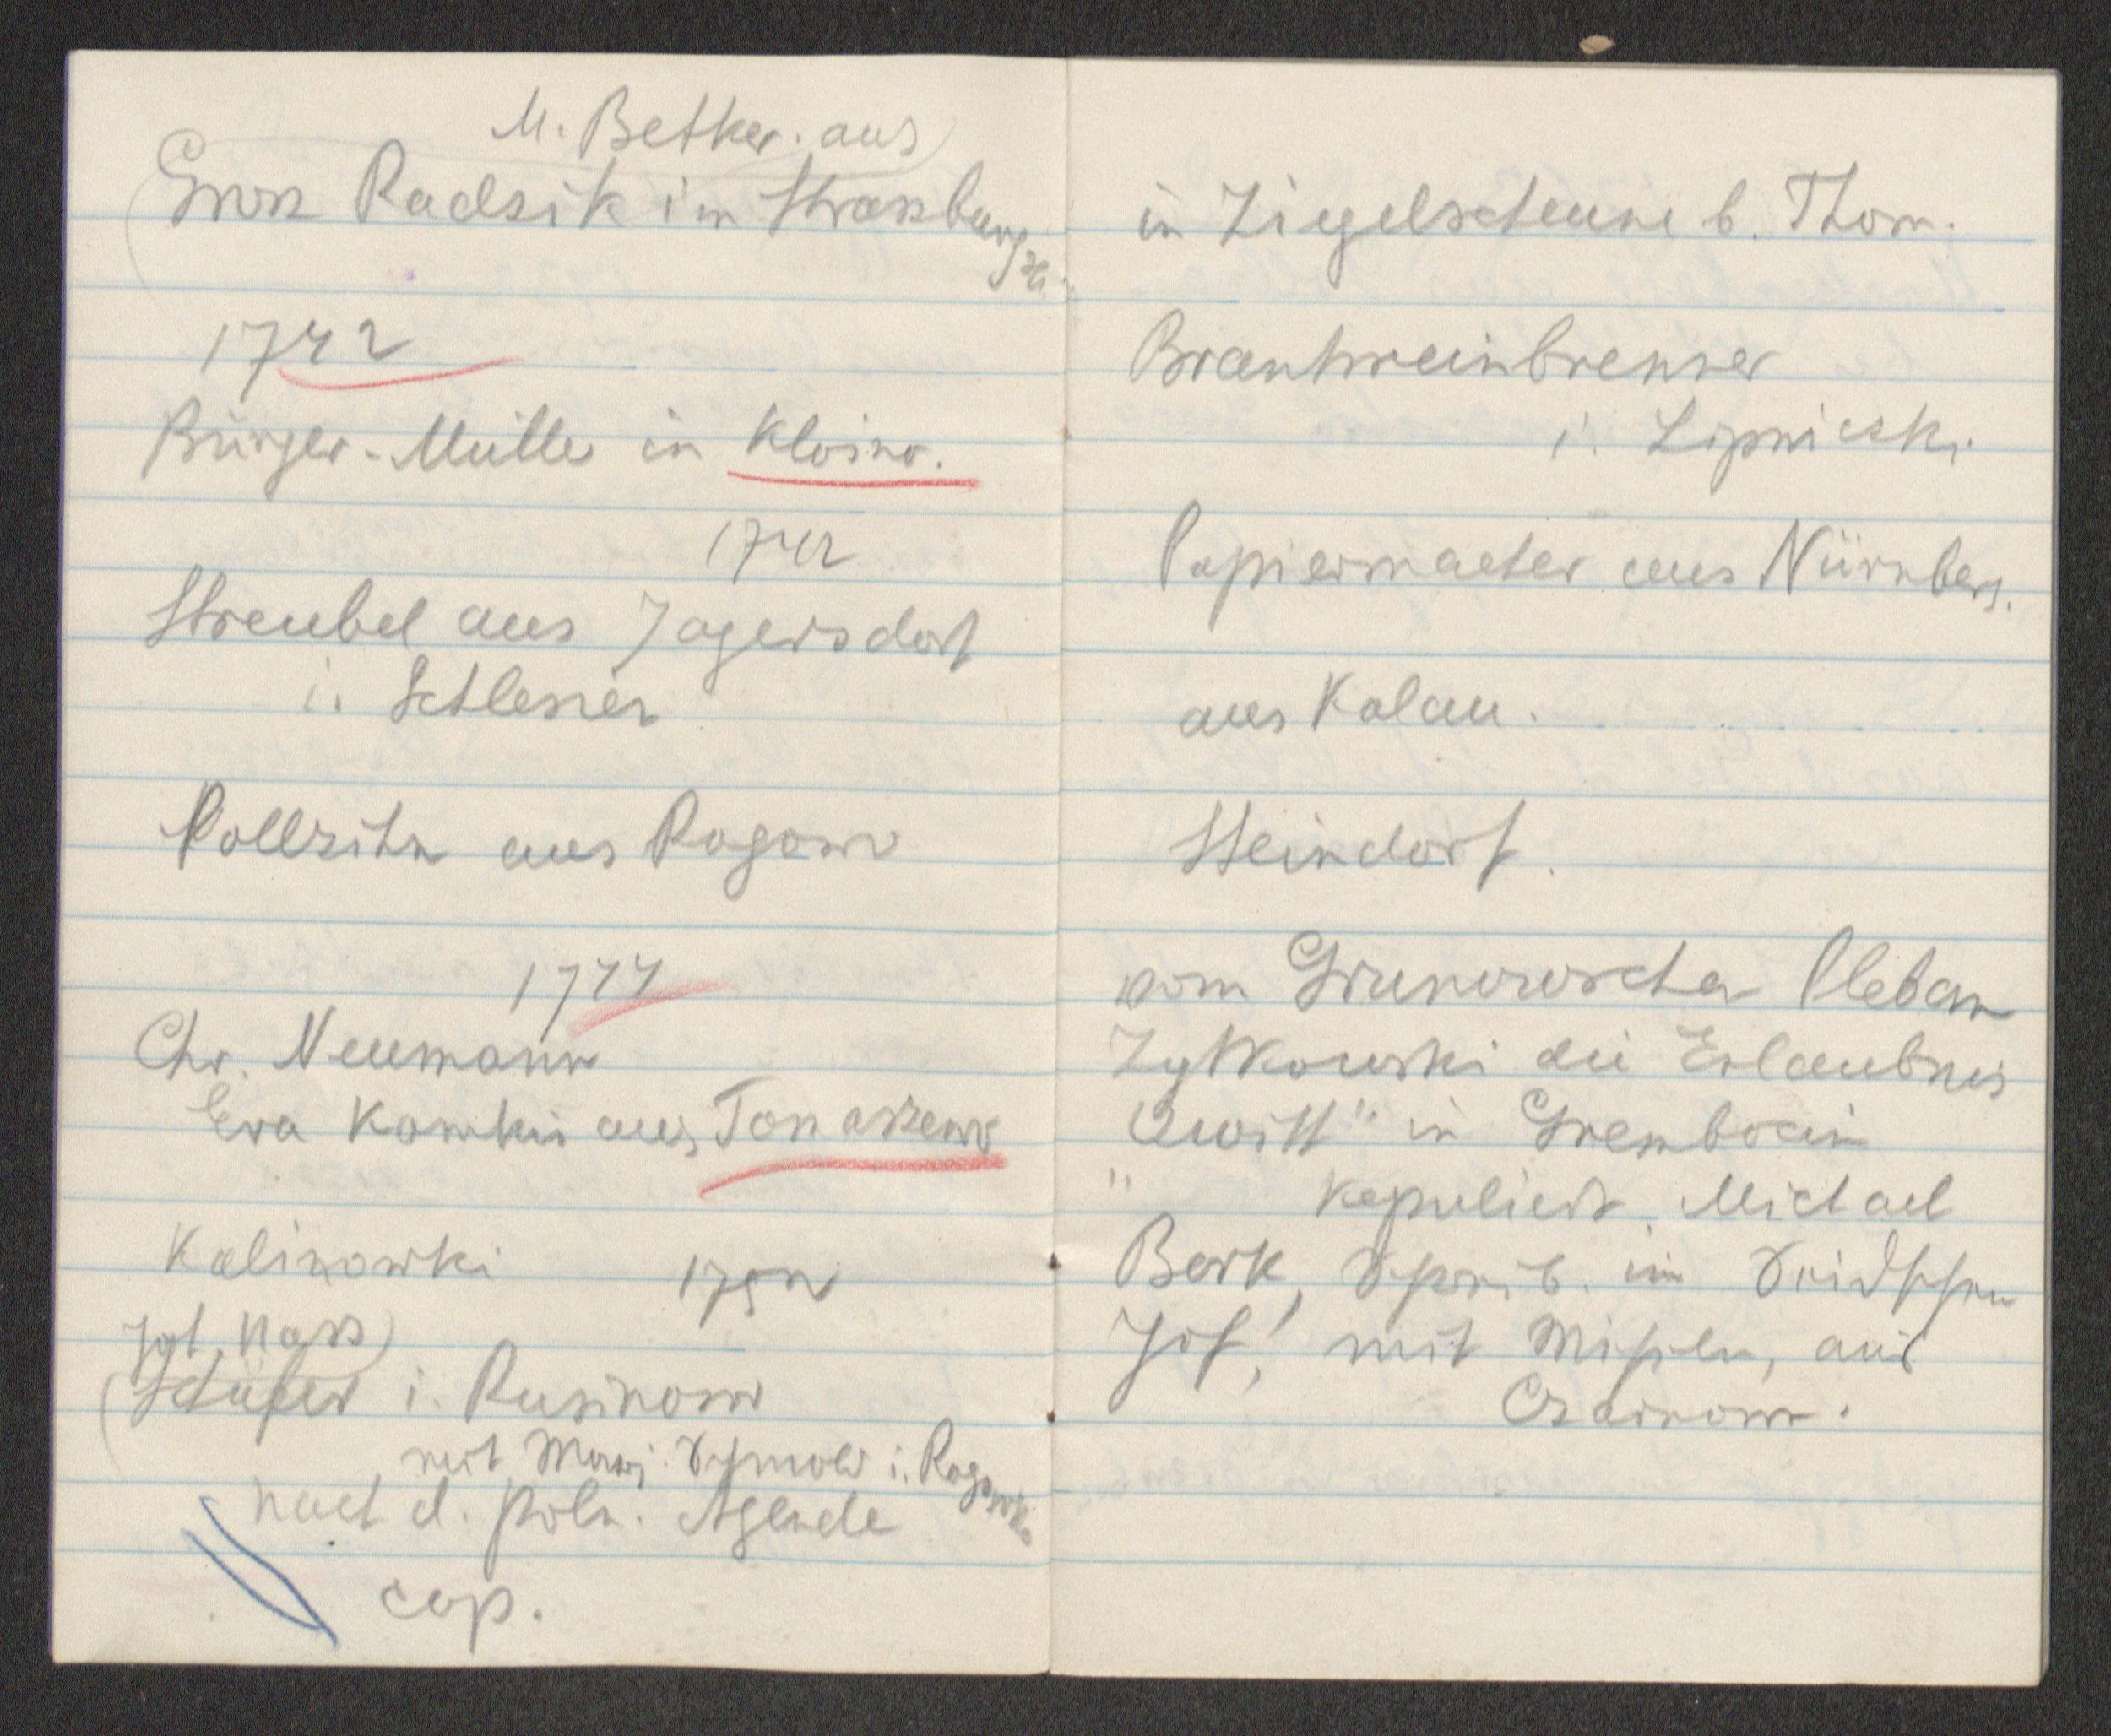 M. Betker. aus
Gross Radsik im Strassburgsch.
1742
Bürger-Mülle in Kloino.
1742
Streubel aus Jagersdorf
i. Schlesien
aus Rogowo
1744
Chr. Neumann
Eva Kawkin aus
Kalinowski 1752
jgl. Nass)
Schäfer i. Rusinowo
mit i. Rogowko
nach d. poln. Agende
cop.
in Ziegelscheune b. Thorn.
Brantweinbrenner
i. Lipnicski
Papiermacher aus Nürnberg.
aus Kolau.
Steindorf.
vom Grunowoschen Pleban
Zytkowski die Erlaubnis
"Qwitt" in Grembocin
" kopuliert. Michael
Bork, im
Hof! mit aus